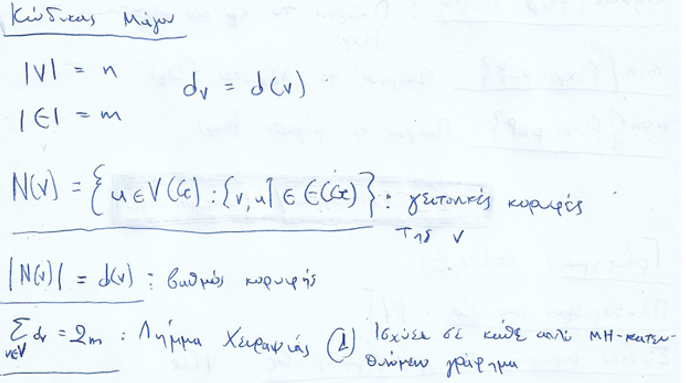 Κώδικας Μάγου
|V| = n
d_v = d(v)
|E| = m
N(v) = {u ∈ V(G) : {v, u} ∈ E(G)} : γειτονικές κορυφές
της v
|N(v)| = d(v) : βαθμός κορυφής
Σ_{v∈V} d_v = 2m : Λήμμα Χειραψίας ① Ισχύει σε κάθε απλό ΜΗ-κατευ-
θυνόμενο γράφημα